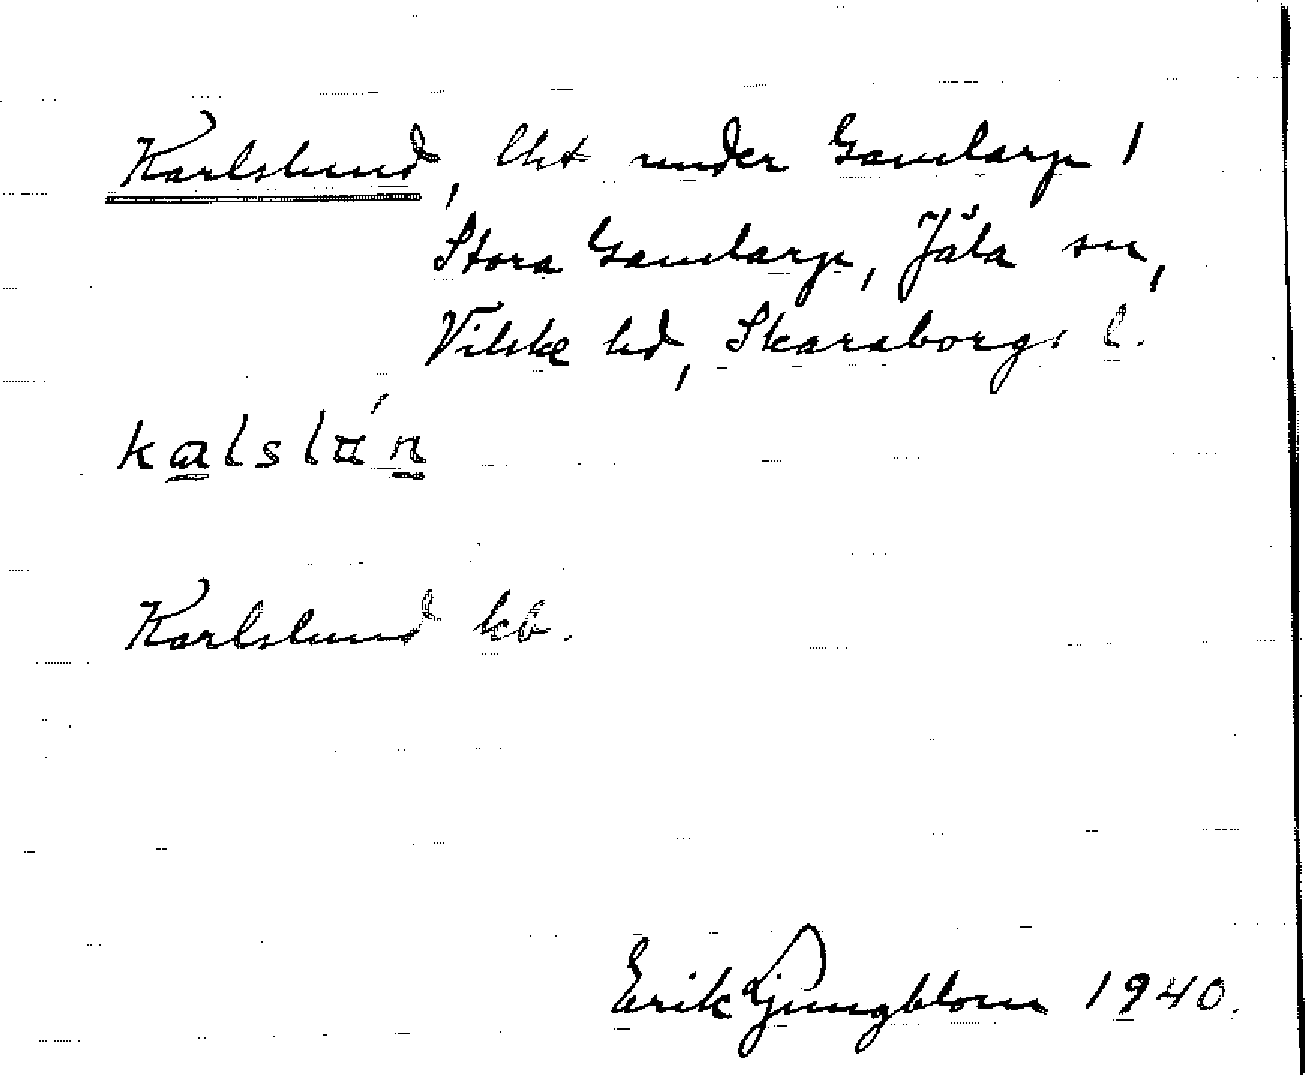 Karlslund, lht under Gamlarp 1
Stora Gamlarp, Jäla sn,
Vilske hd, Skaraborgs l.
kalslɷ́n
Karlslund kb.
Erik Ljungblom 1940.